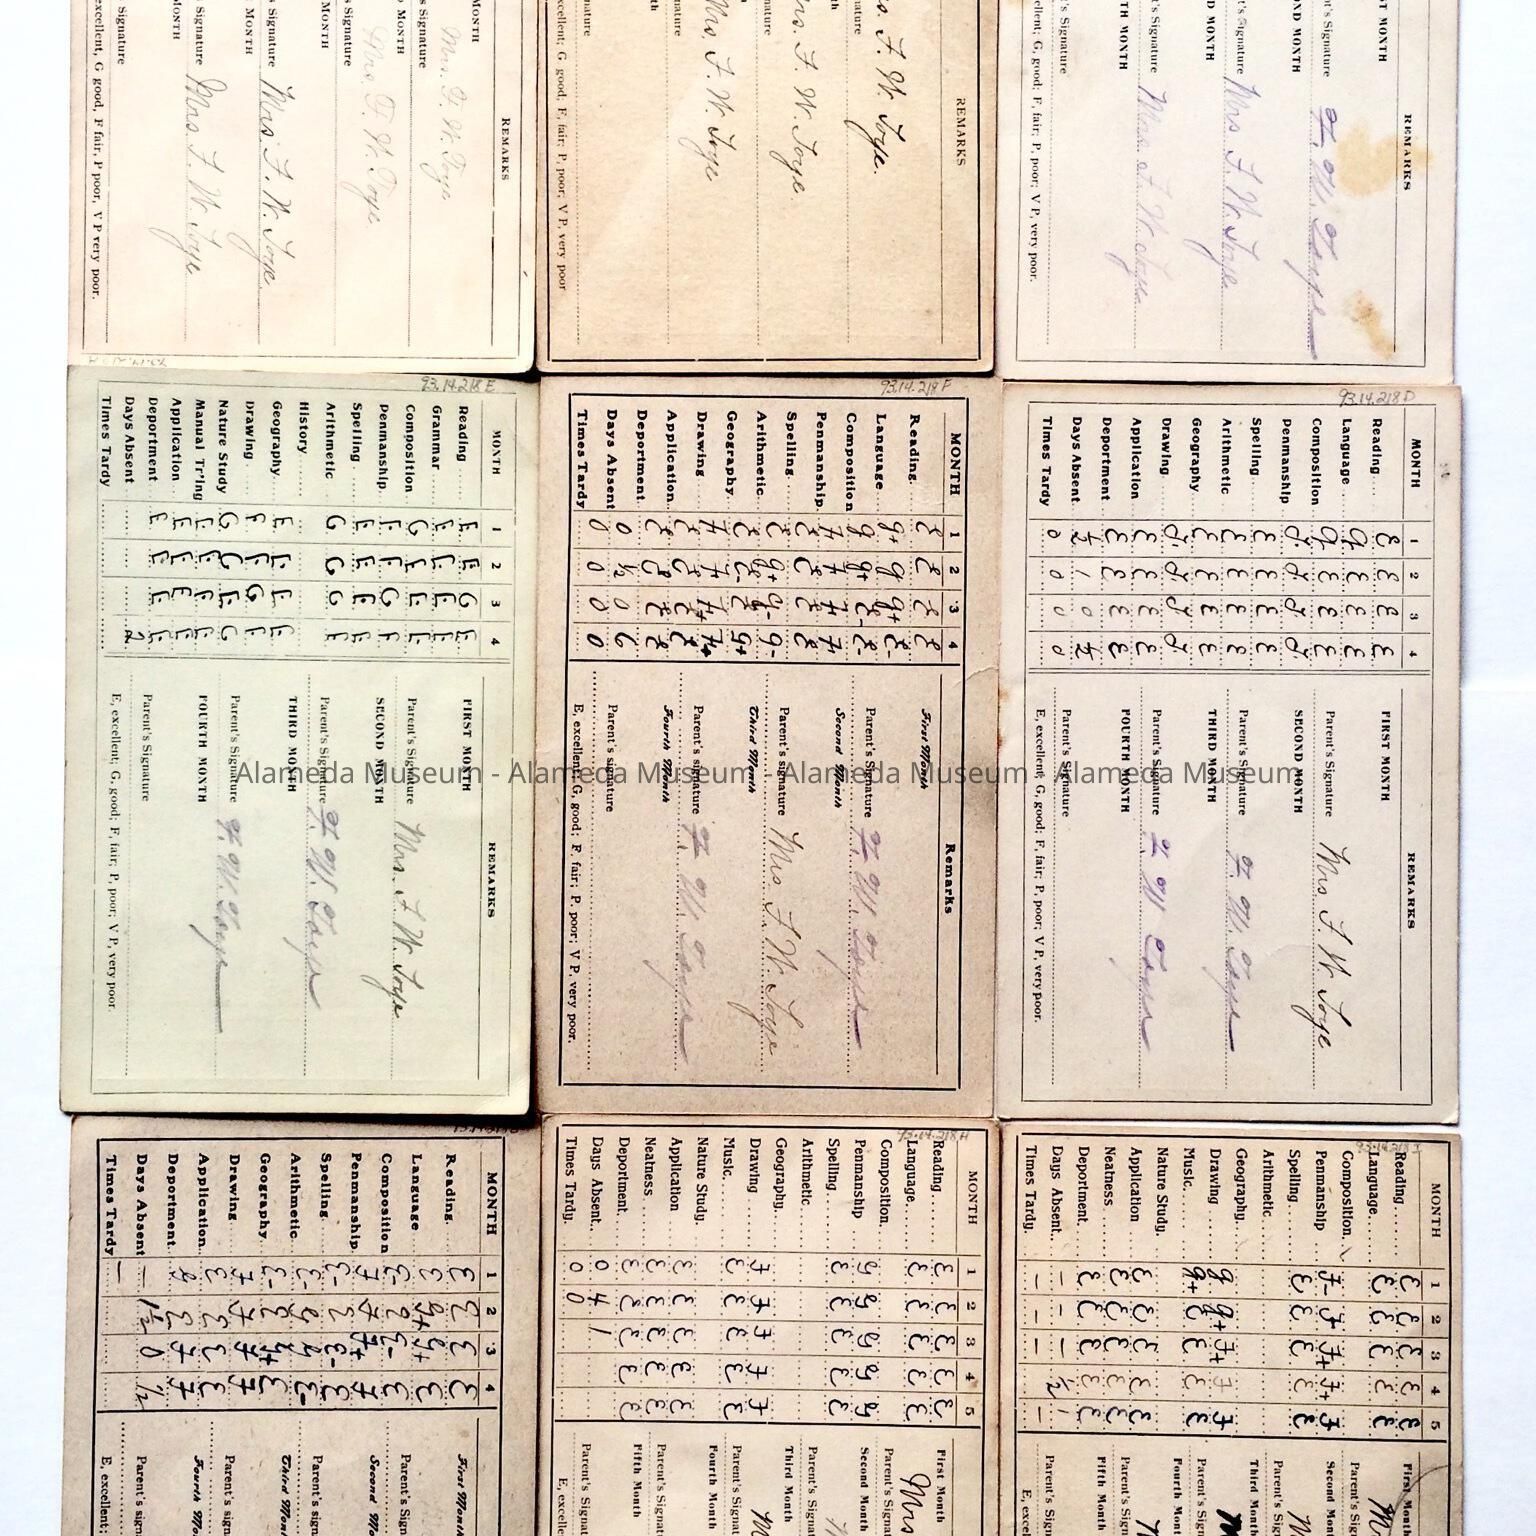 MONTH
Signature Mrs. F. W. Toye
MONTH
Signature Mrs. F. W. Toye
MONTH
Signature Mrs. F. W. Toye
MONTH
Signature
REMARKS
excellent, G good, F fair, P poor, V P very poor.
REMARKS
F. W. Toye.
Mrs. F. W. Toye.
Mrs. F. W. Toye
excellent; G good; F, fair; P, poor, V P, very poor
REMARKS
MONTH
Signature F. W. Toye
SECOND MONTH
Signature Mrs F. W. Toye
MONTH
Signature Mrs F. W. Toye
MONTH
Signature
G good; F fair; P, poor, V P, very poor.
93.14.218 E
MONTH 1 2 3 4
Reading E E G E
Grammar E E E E
Composition G E E E
Penmanship E E G E
Spelling E E E E
Arithmetic G G G E
History
Geography E E E E
Drawing E E G E
Nature Study G G E G
Manual Tr'ing E E E E
Application E E E E
Deportment E E E E
Days Absent 2
Times Tardy
REMARKS
FIRST MONTH
Parent's Signature Mrs. F. W. Toye
SECOND MONTH
Parent's Signature F. W. Toye
THIRD MONTH
Parent's Signature F. W. Toye
FOURTH MONTH
Parent's Signature
E, excellent; G, good; F, fair; P, poor; V P, very poor.
93.14.218 F
MONTH 1 2 3 4
Reading E E E E
Language g+ g g+ E-
Composition g g+ E- E-
Penmanship F F F F
Spelling E E E E
Arithmetic E g+ g- g-
Geography E E- E g+
Drawing F F F+ F+
Application E E E E
Deportment E E E E
Days Absent 0 ½ 0 6
Times Tardy 0 0 0 0
Remarks
First Month
Parent's signature F. W. Toye
Second Month
Parent's signature Mrs F. W. Toye
Third Month
Parent's signature F. W. Toye
Fourth Month
Parent's signature
E, excellent; G, good; F, fair; P, poor; V P, very poor.
93.14.218 D
MONTH 1 2 3 4
Reading E E E E
Language g E E E
Composition g E E E
Penmanship g g g g
Spelling E E E E
Arithmetic E E E E
Geography E E E E
Drawing g g g g
Application E E E E
Deportment E E E E
Days Absent ½ 1 0 ½
Times Tardy 0 0 0 0
REMARKS
FIRST MONTH
Parent's Signature Mrs F. W. Toye
SECOND MONTH
Parent's Signature F. W. Toye
THIRD MONTH
Parent's Signature F. W. Toye
FOURTH MONTH
Parent's Signature
E, excellent; G, good; F, fair; P, poor; V P, very poor.
Alameda Museum - Alameda Museum - Alameda Museum - Alameda Museum
MONTH 1 2 3 4
Reading
Language
Composition
Penmanship
Spelling
Arithmetic
Geography
Drawing
Application
Deportment
Days Absent – 1½ 0 ½
Times Tardy –
First Month
Parent's sign
Second Mo
Parent's sign
Third Mon
Parent's sign
Fourth Mo
Parent's sign
E, excellent;
93.14.218 H
MONTH 1 2 3 4 5
Reading E E E E E
Language E E E E E
Composition
Penmanship g g g g g
Spelling E E E E E
Arithmetic
Geography
Drawing F F F F F
Music E E E E E
Nature Study
Application E E E E E
Neatness E E E E E
Deportment E E E E E
Days Absent 0 4 1
Times Tardy 0 0
First Month
Parent's Signa Mrs
Second Month
Parent's Signa
Third Month
Parent's Signa
Fourth Month
Parent's Signa
Fifth Month
Parent's Signa
E, excelle
93.14.218 I
MONTH 1 2 3 4 5
Reading E E E E E
Language E E E E E
Composition
Penmanship F- F F+ F+ F
Spelling E E E E E
Arithmetic
Geography
Drawing g g+ F+ F F
Music g+ E E E E
Nature Study
Application E E E E E
Neatness E E E E E
Deportment E E E E E
Days Absent – – – ½ 1
Times Tardy – – – –
First Mont
Parent's Sig
Second Mo
Parent's Sig
Third Mon
Parent's Sig
Fourth Mon
Parent's Sig
Fifth Month
Parent's Sig
E, exce